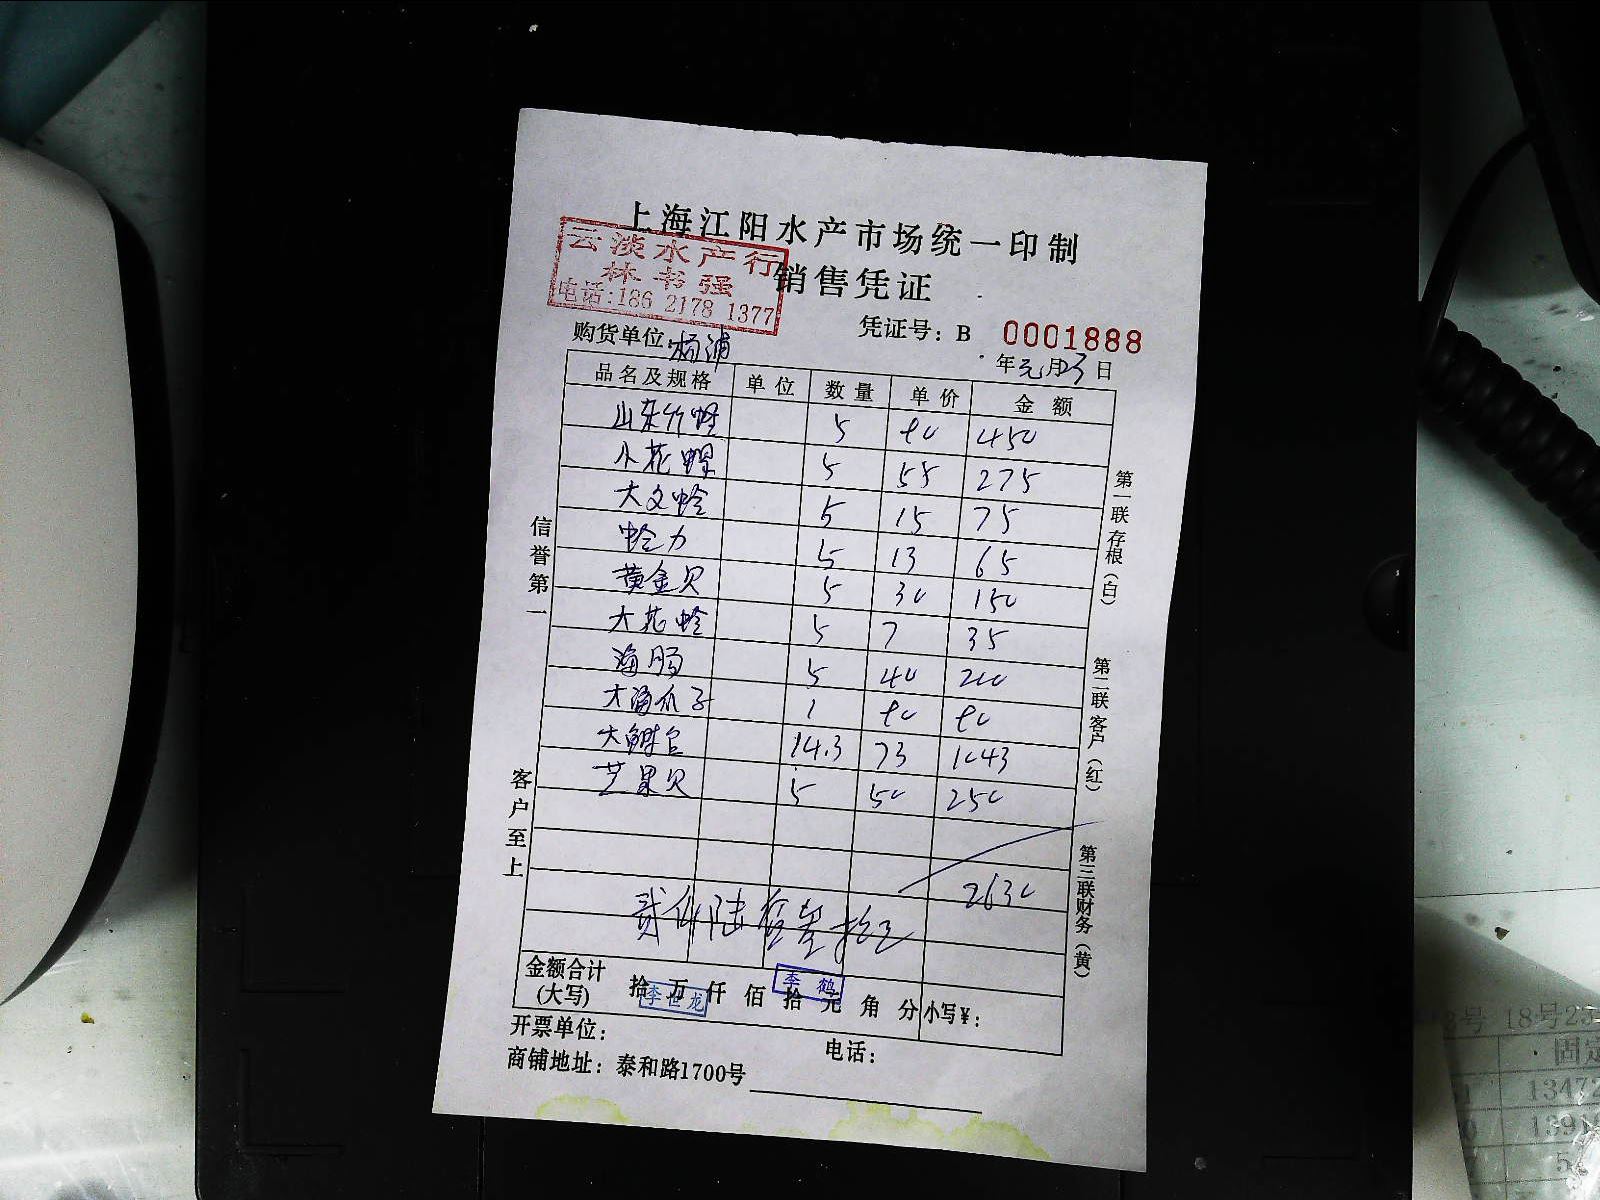 上海江阳水产市场统一印制
销售凭证
云淡水产行
林书强
电话:186 2178 1377
凭证号: B 0001888
购货单位:杨浦
年元月23日
品名及规格 单位 数量 单价 金额
山东竹蛏 5 90 450
小花螺 5 55 275
大文蛤 5 15 75
蛤力 5 13 65
黄金贝 5 30 150
大花蛤 5 7 35
海肠 5 40 200
大海瓜子 1 90 90
大鲍 14.3 73 1043
芒果贝 5 50 250
2630
贰仟陆佰叁拾元
金额合计
(大写)
拾 万 仟 佰 拾 元 角 分 小写¥:
李世龙
李鹤
开票单位:
电话:
商铺地址: 泰和路1700号
信誉第一
客户至上
第一联存根(白)
第二联客户(红)
第三联财务(黄)
18号23
固定
13472
1391